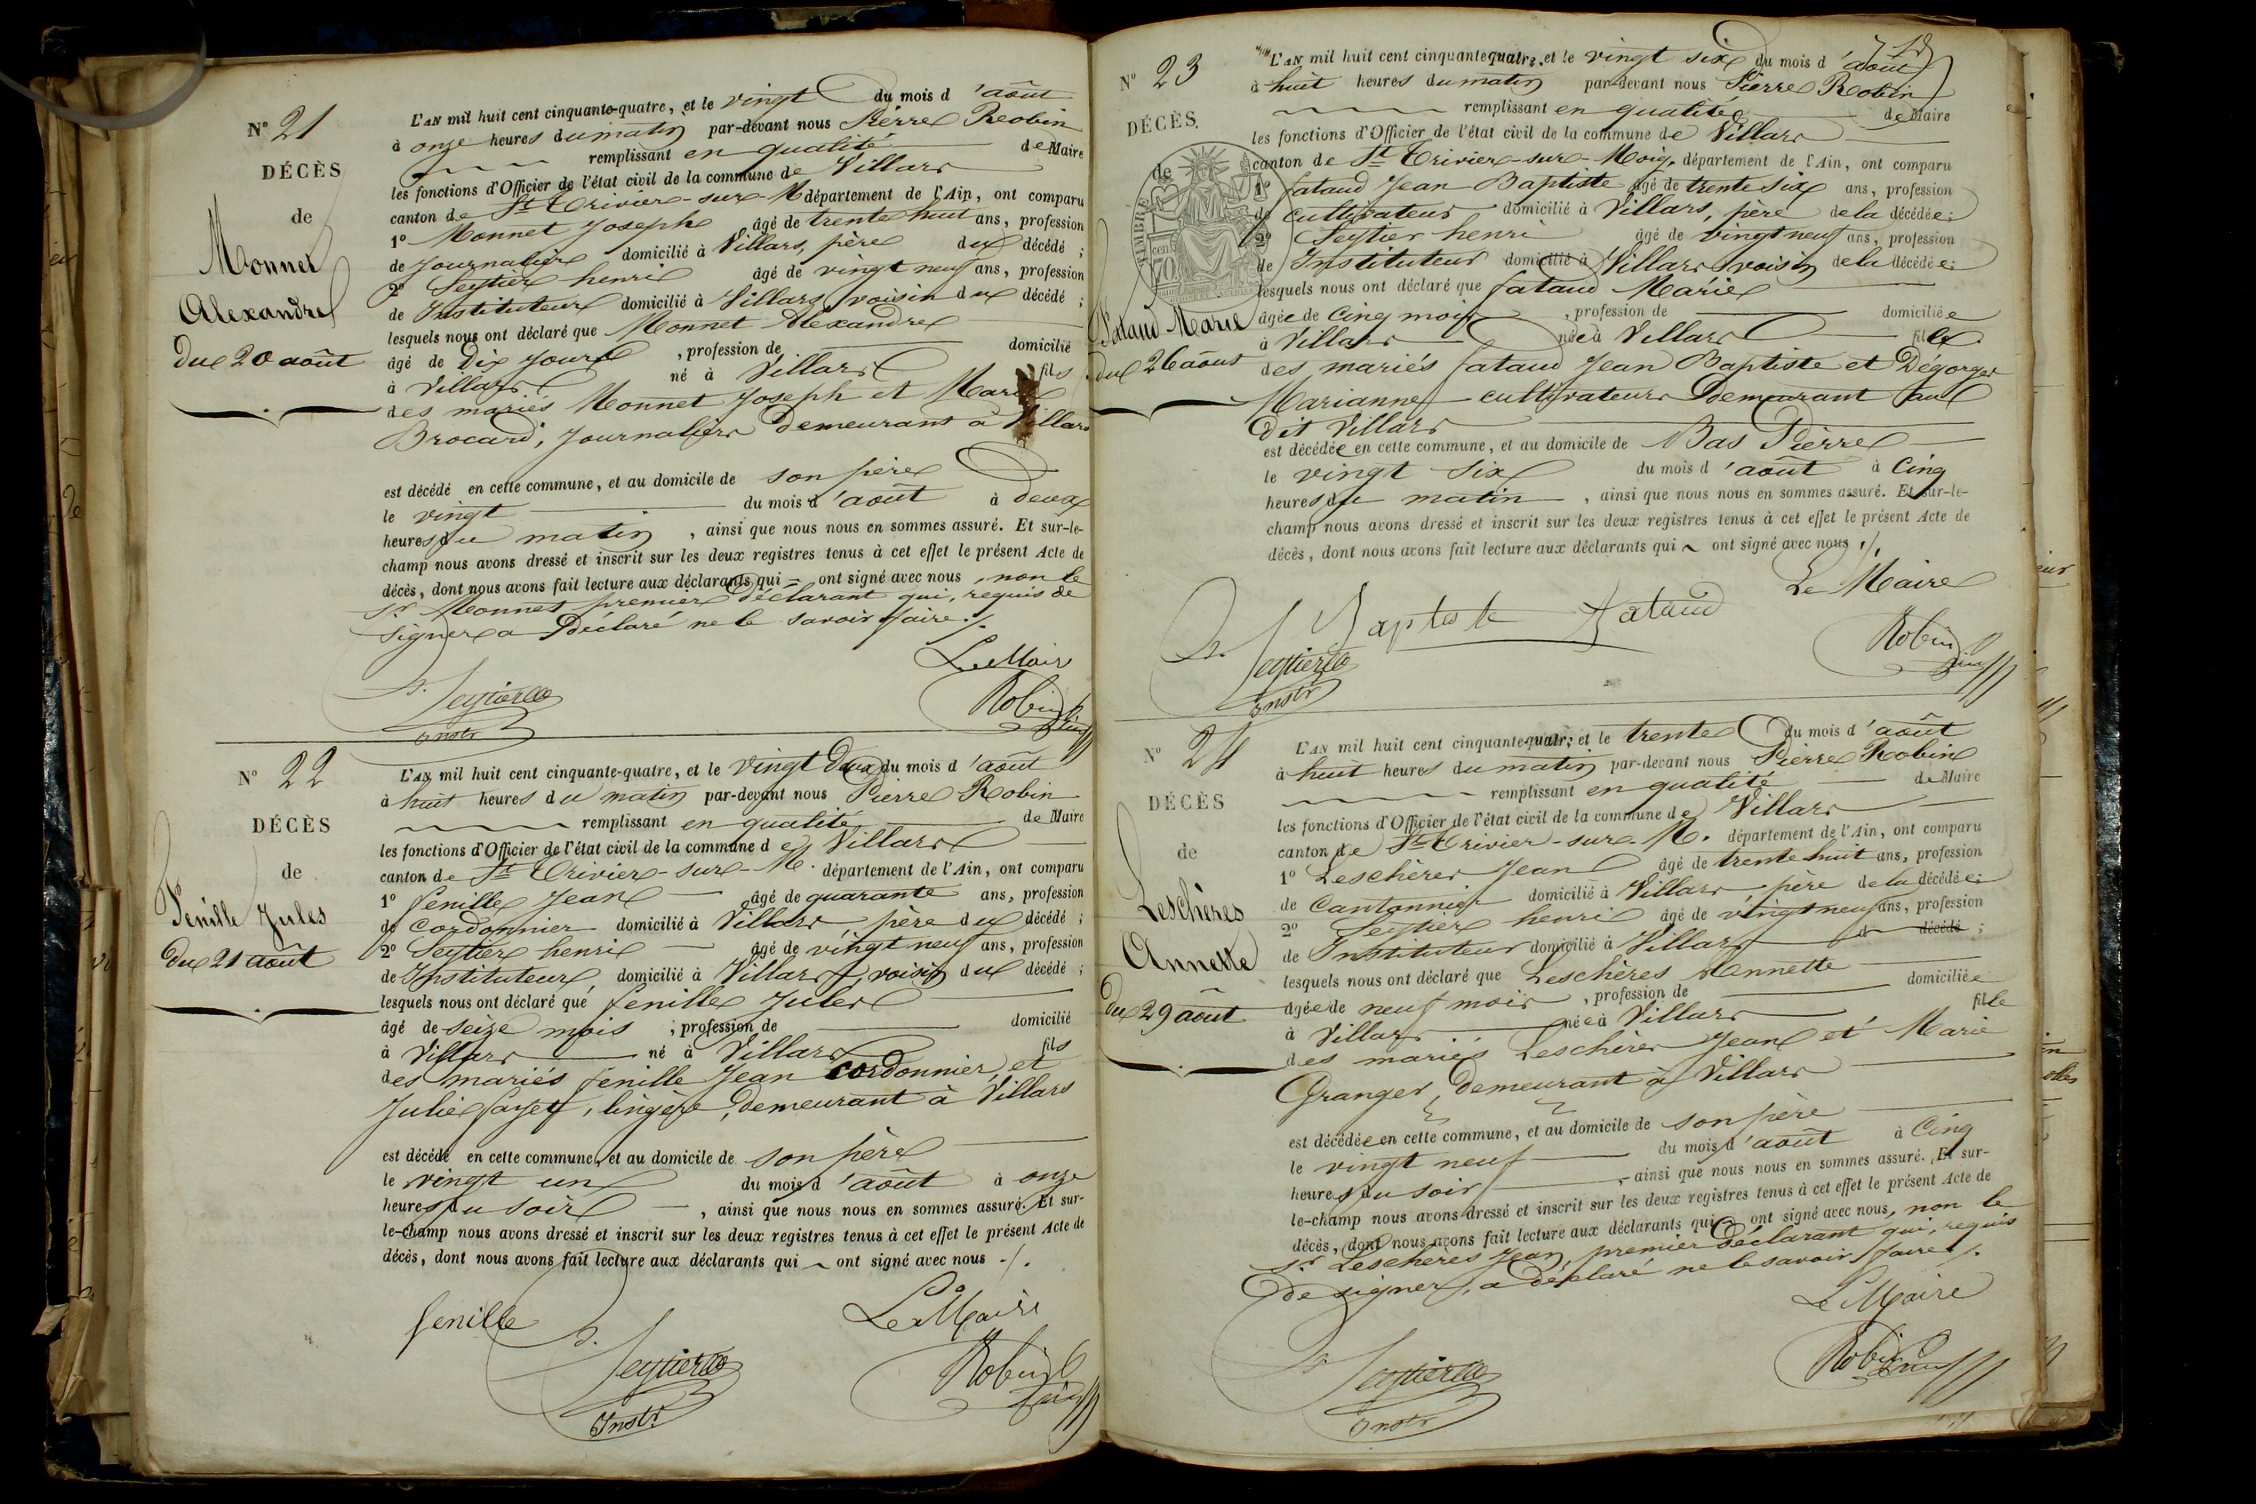 N° 21
DÉCÈS
de
Monnet
Alexandre
du 20 août
L'AN mil huit cent cinquante-quatre, et le vingt du mois d'août
à onze heures du matin par-devant nous Pierre Robin
remplissant en qualité de Maire
les fonctions d'Officier de l'état civil de la commune de Villars
canton de St Trivier-sur-M département de l'Ain, ont comparu
1° Monnet Joseph âgé de trente huit ans, profession
de Journalier domicilié à Villars, père du décédé ;
2° Seytier henri âgé de vingt neuf ans, profession
de Instituteur domicilié à Villars, voisin du décédé ;
lesquels nous ont déclaré que Monnet Alexandre
âgé de Dix jours, profession de domicilié
à Villars né à Villars fils
des mariés Monnet Joseph et Marie
Brocard, journaliers demeurant à Villars
est décédé en cette commune, et au domicile de son père
le vingt du mois d'août à deux
heures du matin, ainsi que nous nous en sommes assuré. Et sur-le-
champ nous avons dressé et inscrit sur les deux registres tenus à cet effet le présent Acte de
décès, dont nous avons fait lecture aux déclarants qui ont signé avec nous, non le
sr Monnet premier déclarant qui, requis de
signer a déclaré ne le savoir faire ./.
Le Maire
Seytier
Instr
Robin
N° 22
DÉCÈS
de
Fenille Jules
du 21 août
L'AN mil huit cent cinquante-quatre, et le vingt deux du mois d'août
à huit heures du matin par-devant nous Pierre Robin
remplissant en qualité de Maire
les fonctions d'Officier de l'état civil de la commune de Villars
canton de St Trivier-sur-M. département de l'Ain, ont comparu
1° fenille Jean âgé de quarante ans, profession
de cordonnier domicilié à Villars, père du décédé ;
2° Seytier henri âgé de vingt neuf ans, profession
de Instituteur domicilié à Villars, voisin du décédé ;
lesquels nous ont déclaré que fenille Jules
âgé de seize mois ; profession de domicilié
à Villars né à Villars fils
des mariés fenille Jean cordonnier, et
Julie fayet, lingère, demeurant à Villars
est décédé en cette commune, et au domicile de son père
le vingt un du mois d'août à onze
heures du soir, ainsi que nous nous en sommes assuré. Et sur-
le-champ nous avons dressé et inscrit sur les deux registres tenus à cet effet le présent Acte de
décès, dont nous avons fait lecture aux déclarants qui ont signé avec nous ./.
fenille
Le Maire
Seytier
Instr
Robin
N° 23
DÉCÈS.
de
TIMBRE
70 cen
Fataud Marie
du 26 août
L'AN mil huit cent cinquante quatre, et le vingt six du mois d'août
à huit heures du matin par-devant nous Pierre Robin
remplissant en qualité de Maire
les fonctions d'Officier de l'état civil de la commune de Villars
canton de St Trivier-sur-Moig. département de l'Ain, ont comparu
1° fataud Jean Baptiste âgé de trente six ans, profession
de cultivateur domicilié à Villars, père de la décédée ;
2° Seytier henri âgé de vingt neuf ans, profession
de Instituteur domicilié à Villars voisin de la décédée ;
lesquels nous ont déclaré que fataud Marie
âgée de cinq mois, profession de domiciliée
à Villars née à Villars fille
des mariés fataud Jean Baptiste et Dégorger
Marianne cultivateurs demeurant au
dit Villars
est décédée en cette commune, et au domicile de Bas Pierre
le vingt six du mois d'août à cinq
heures du matin, ainsi que nous nous en sommes assuré. Et sur-le-
champ nous avons dressé et inscrit sur les deux registres tenus à cet effet le présent Acte de
décès, dont nous avons fait lecture aux déclarants qui ont signé avec nous ./.
Le Maire
Baptiste fataud
Seytier
Instr
Robin
N° 24
DÉCÈS
de
Leschères
Annette
du 29 août
L'AN mil huit cent cinquante-quatre, et le trente du mois d'août
à huit heures du matin par-devant nous Pierre Robin
remplissant en qualité de Maire
les fonctions d'Officier de l'état civil de la commune de Villars
canton de St Trivier-sur-M. département de l'Ain, ont comparu
1° Leschères Jean âgé de trente huit ans, profession
de Cantonnier domicilié à Villars, père de la décédée ;
2° Seytier henri âgé de vingt neuf ans, profession
de Instituteur domicilié à Villars d décédé ;
lesquels nous ont déclaré que Leschères Annette
âgée de neuf mois, profession de domiciliée
à Villars née à Villars fille
des mariés Leschères Jean et Marie
Granger, demeurant à Villars
est décédée en cette commune, et au domicile de son père
le vingt neuf du mois d'août à cinq
heures du soir, ainsi que nous nous en sommes assuré. Et sur-
le-champ nous avons dressé et inscrit sur les deux registres tenus à cet effet le présent Acte de
décès, dont nous avons fait lecture aux déclarants qui ont signé avec nous, non le
sr Leschères Jean premier déclarant qui, requis
de signer, a déclaré ne le savoir faire ./.
Le Maire
Seytier
Instr
Robin